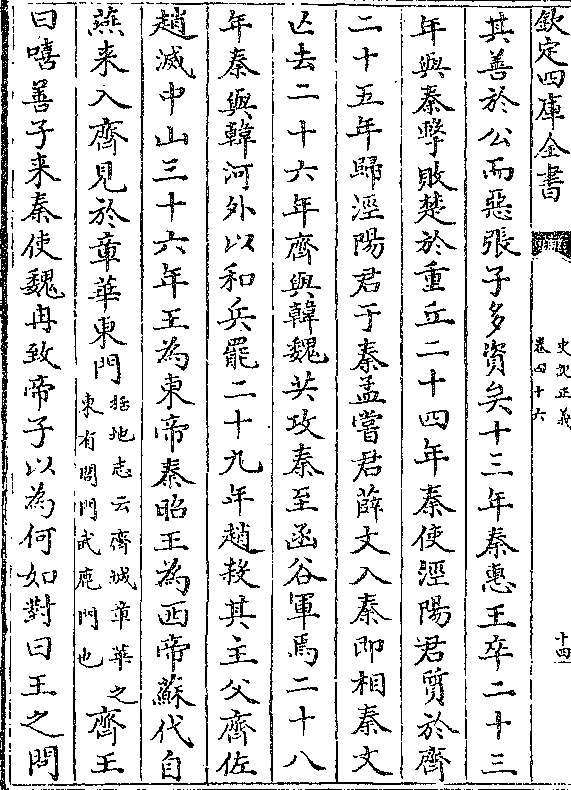 欽定四庫全書
史記正義
卷四十六
十四
其善於公而惡張子多資矣十三年秦惠王卒二十三
年與秦擊敗楚於重丘二十四年秦使涇陽君質於齊
二十五年歸涇陽君于秦孟嘗君薛文入秦即相秦文
亾去二十六年齊與韓魏共攻秦至函谷軍焉二十八
年秦與韓河外以和兵罷二十九年趙殺其主父齊佐
趙滅中山三十六年王為東帝秦昭王為西帝蘇代自
燕来入齊見於章華東門
括地志云齊城章華之
東有閭門武鹿門也
齊王
曰嘻善子来秦使魏冉致帝子以為何如對曰王之問